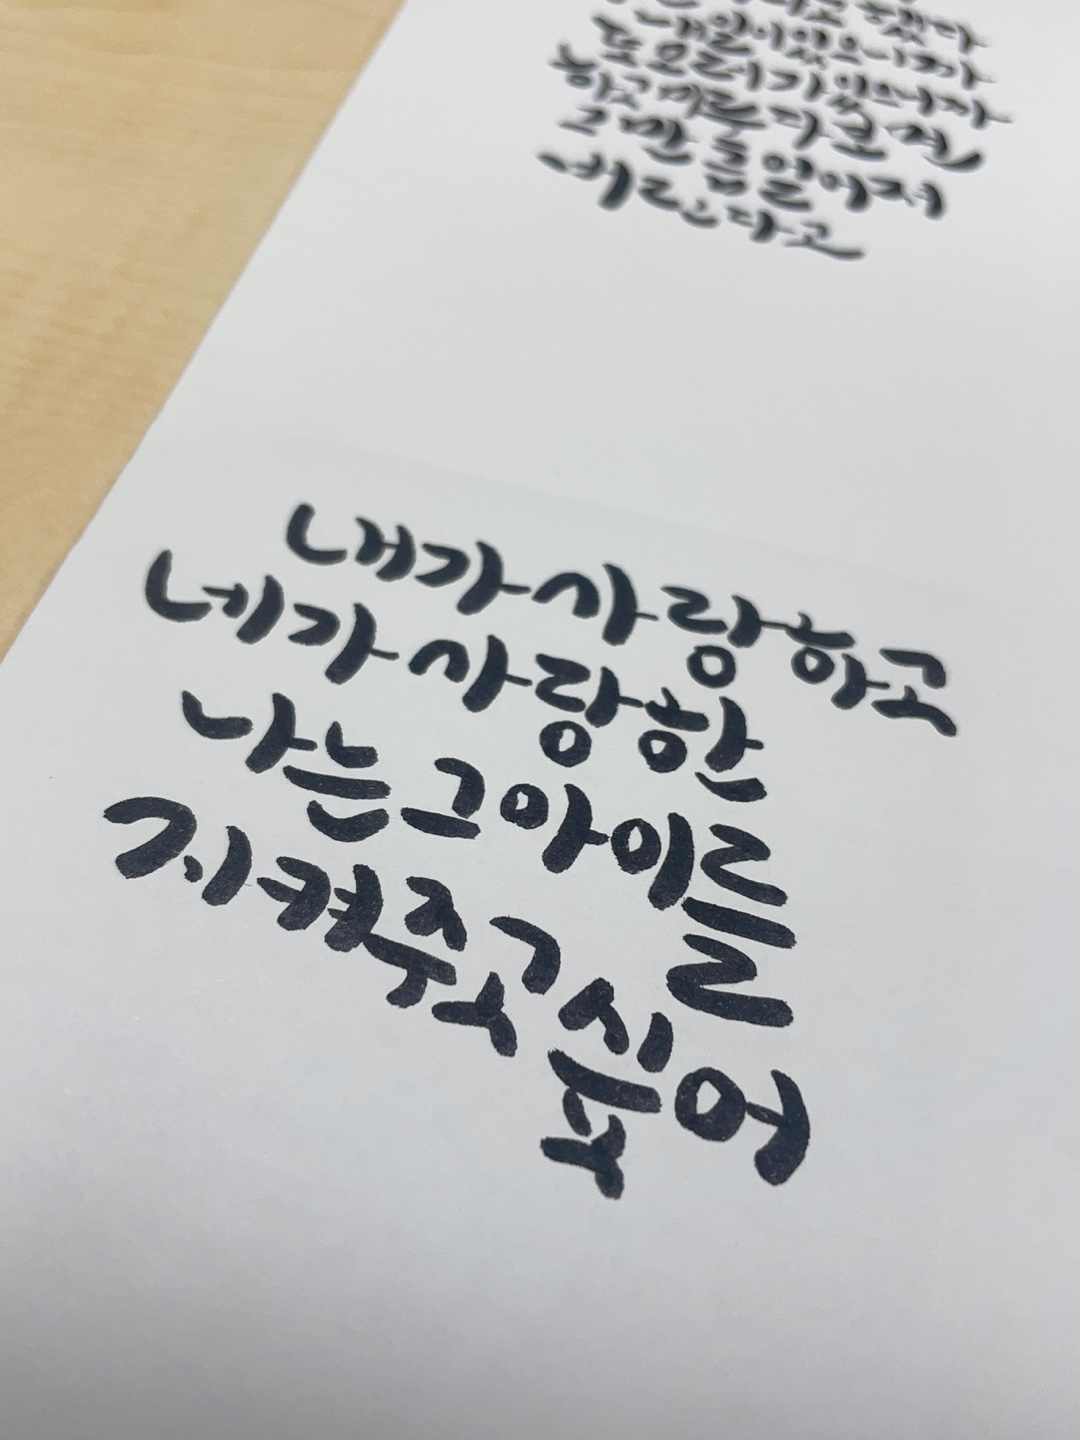 했다
내일이 있으니까
또 모레가 있으니까
하고 미루다 보면
그만큼 멀어져
버린다고
내가 사랑하고
네가 사랑한
나는 그 아이를
지켜주고 싶어